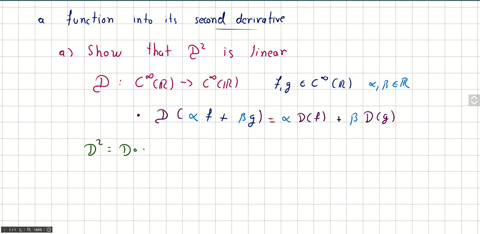 a function into its second derivative
a) Show that D² is linear
D : C^∞(ℝ) → C^∞(ℝ) f, g ∈ C^∞(ℝ) α, β ∈ ℝ
• D (α f + β g) = α D(f) + β D(g)
D² = D∘.